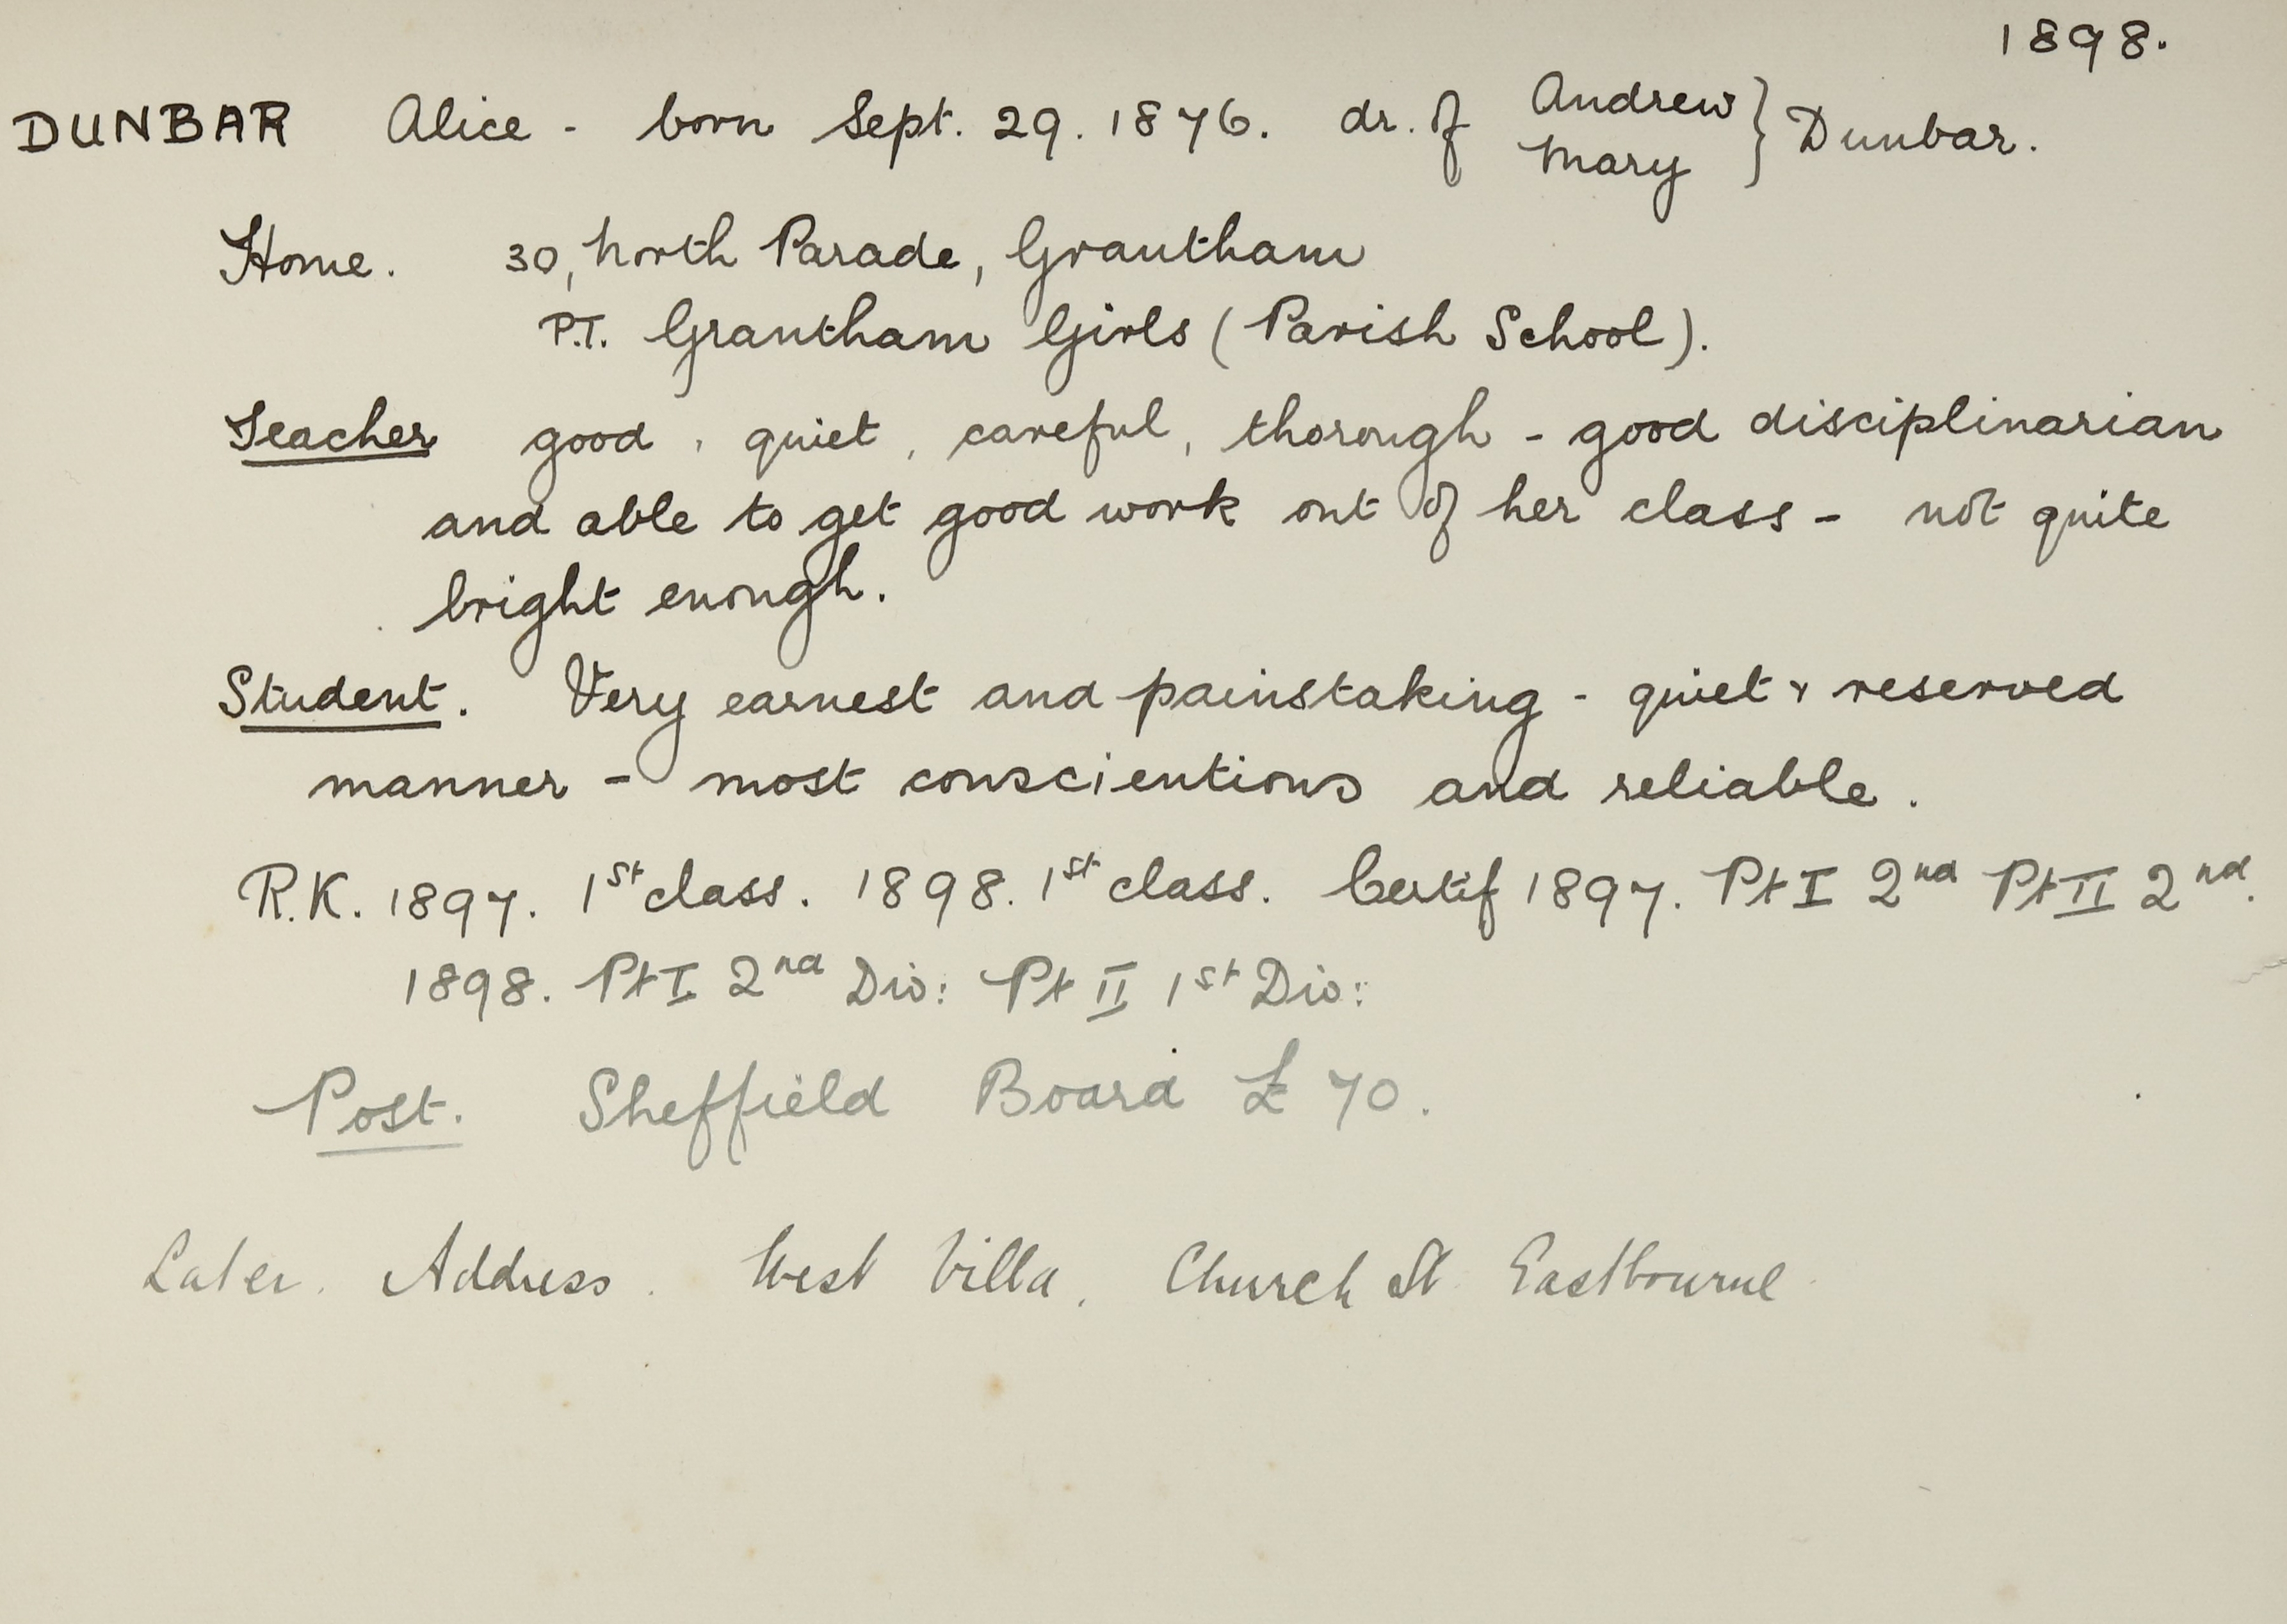 1898.
DUNBAR Alice - born Sept. 29. 1876. dr. of Andrew } Dunbar.
Mary
Home. 30, North Parade, Grantham
P.T. Grantham Girls (Parish School).
Teacher good, quiet, careful, thorough - good disciplinarian
and able to get good work out of her class - not quite
bright enough.
Student. Very earnest and painstaking - quiet & reserved
manner - most conscientious and reliable.
R.K. 1897. 1st class. 1898. 1st class. Certif 1897. Pt I 2nd Pt II 2nd.
1898. Pt I 2nd Div: Pt II 1st Div:
Post. Sheffield Board £70.
Later. Address. West Villa, Church St Eastbourne